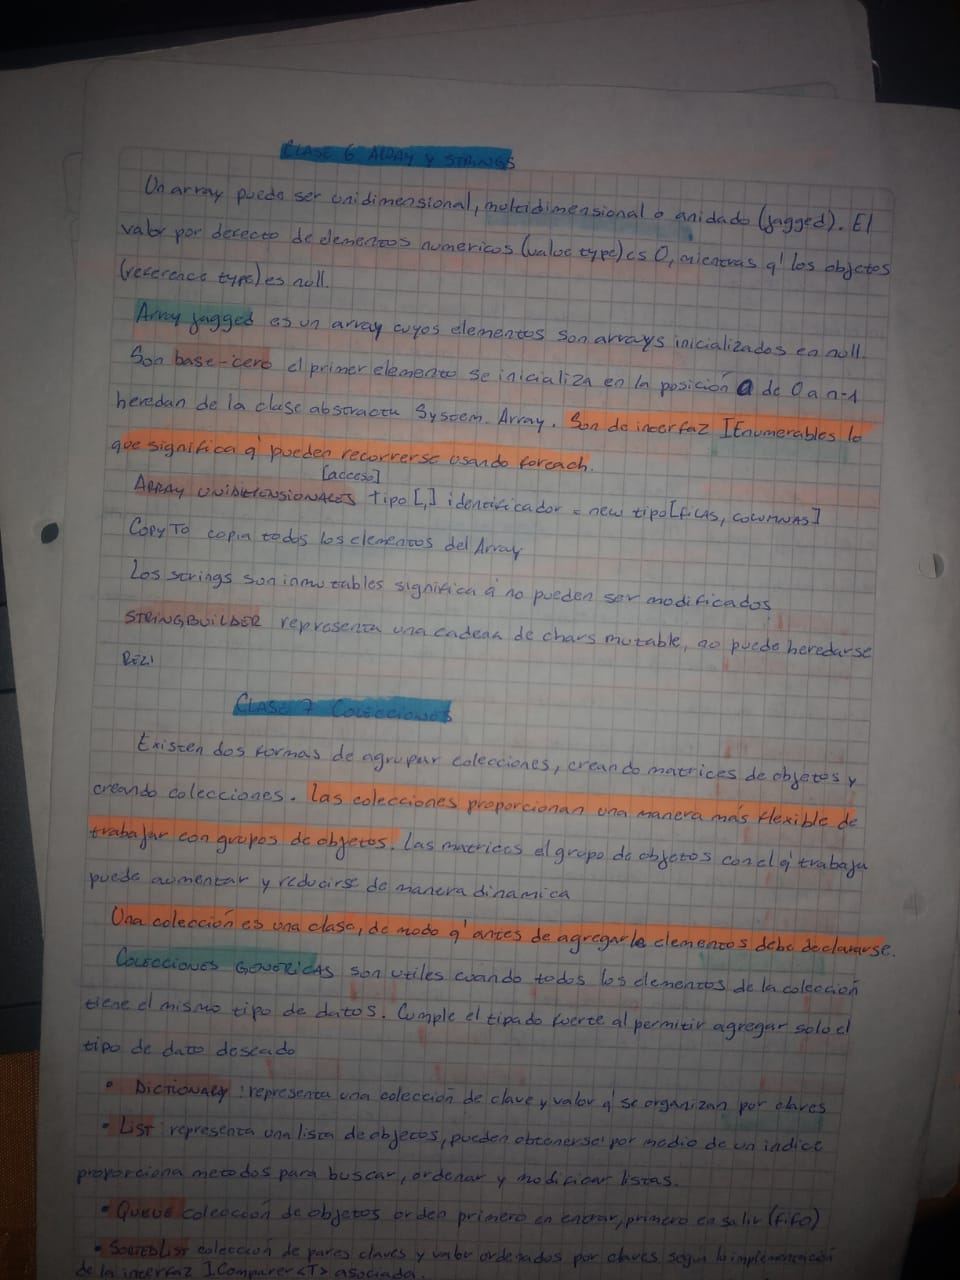 CLASE 6 ARRAY Y STRINGS
Un array puede ser unidimensional, multidimensional o anidado (jagged). El
valor por defecto de elementos numericos (value type) es 0, mientras q' los objetos
(reference type) es null.
Array jagged es un array cuyos elementos son arrays inicializados en null.
Son base-cero el primer elemento se inicializa en la posición 0 de 0 a n-1
heredan de la clase abstracta System.Array. Son de interfaz IEnumerables lo
que significa q' pueden recorrerse usando foreach.
[acceso]
ARRAY UNIDIMENSIONALES Tipo[,] identificador = new tipo[FILAS, COLUMNAS]
COPYTO copia todos los elementos del Array
Los strings son inmutables significa q no pueden ser modificados
STRINGBUILDER representa una cadena de chars mutable, no puede heredarse
CLASE 7 COLECCIONES
Existen dos formas de agrupar colecciones, creando matrices de objetos y
creando colecciones. Las colecciones proporcionan una manera más flexible de
trabajar con grupos de objetos. Las matrices el grupo de objetos con el q' trabaja
puede aumentar y reducirse de manera dinamica
Una colección es una clase, de modo q' antes de agregarle elementos debe declararse.
COLECCIONES GENERICAS son utiles cuando todos los elementos de la colección
tiene el mismo tipo de datos. Cumple el tipado fuerte al permitir agregar solo el
tipo de dato deseado
• DICTIONARY: representa una colección de clave y valor q' se organizan por claves
• LIST: representa una lista de objetos, pueden obtenerse por medio de un indice
proporciona metodos para buscar, ordenar y modificar listas.
• QUEUE colección de objetos orden primero en entrar, primero en salir (fifo)
• SORTEDLIST colección de pares claves y valor ordenados por claves según la implementación
de la interfaz IComparer<T> asociada.